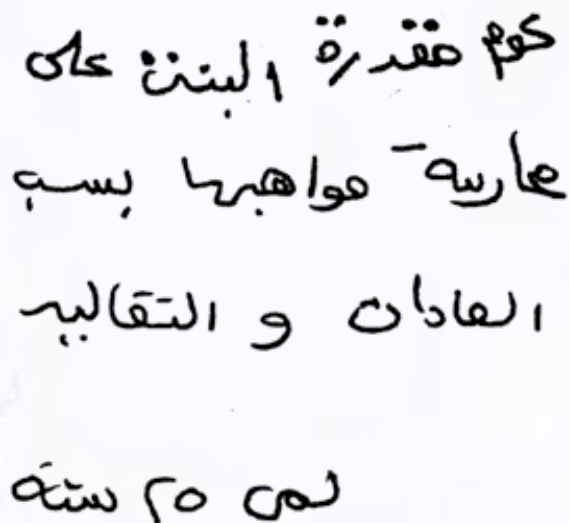 عدم مقدرة البنت على
ممارسة مواهبها بسبب
العادات و التقاليد
لمى ٢٥ سنة